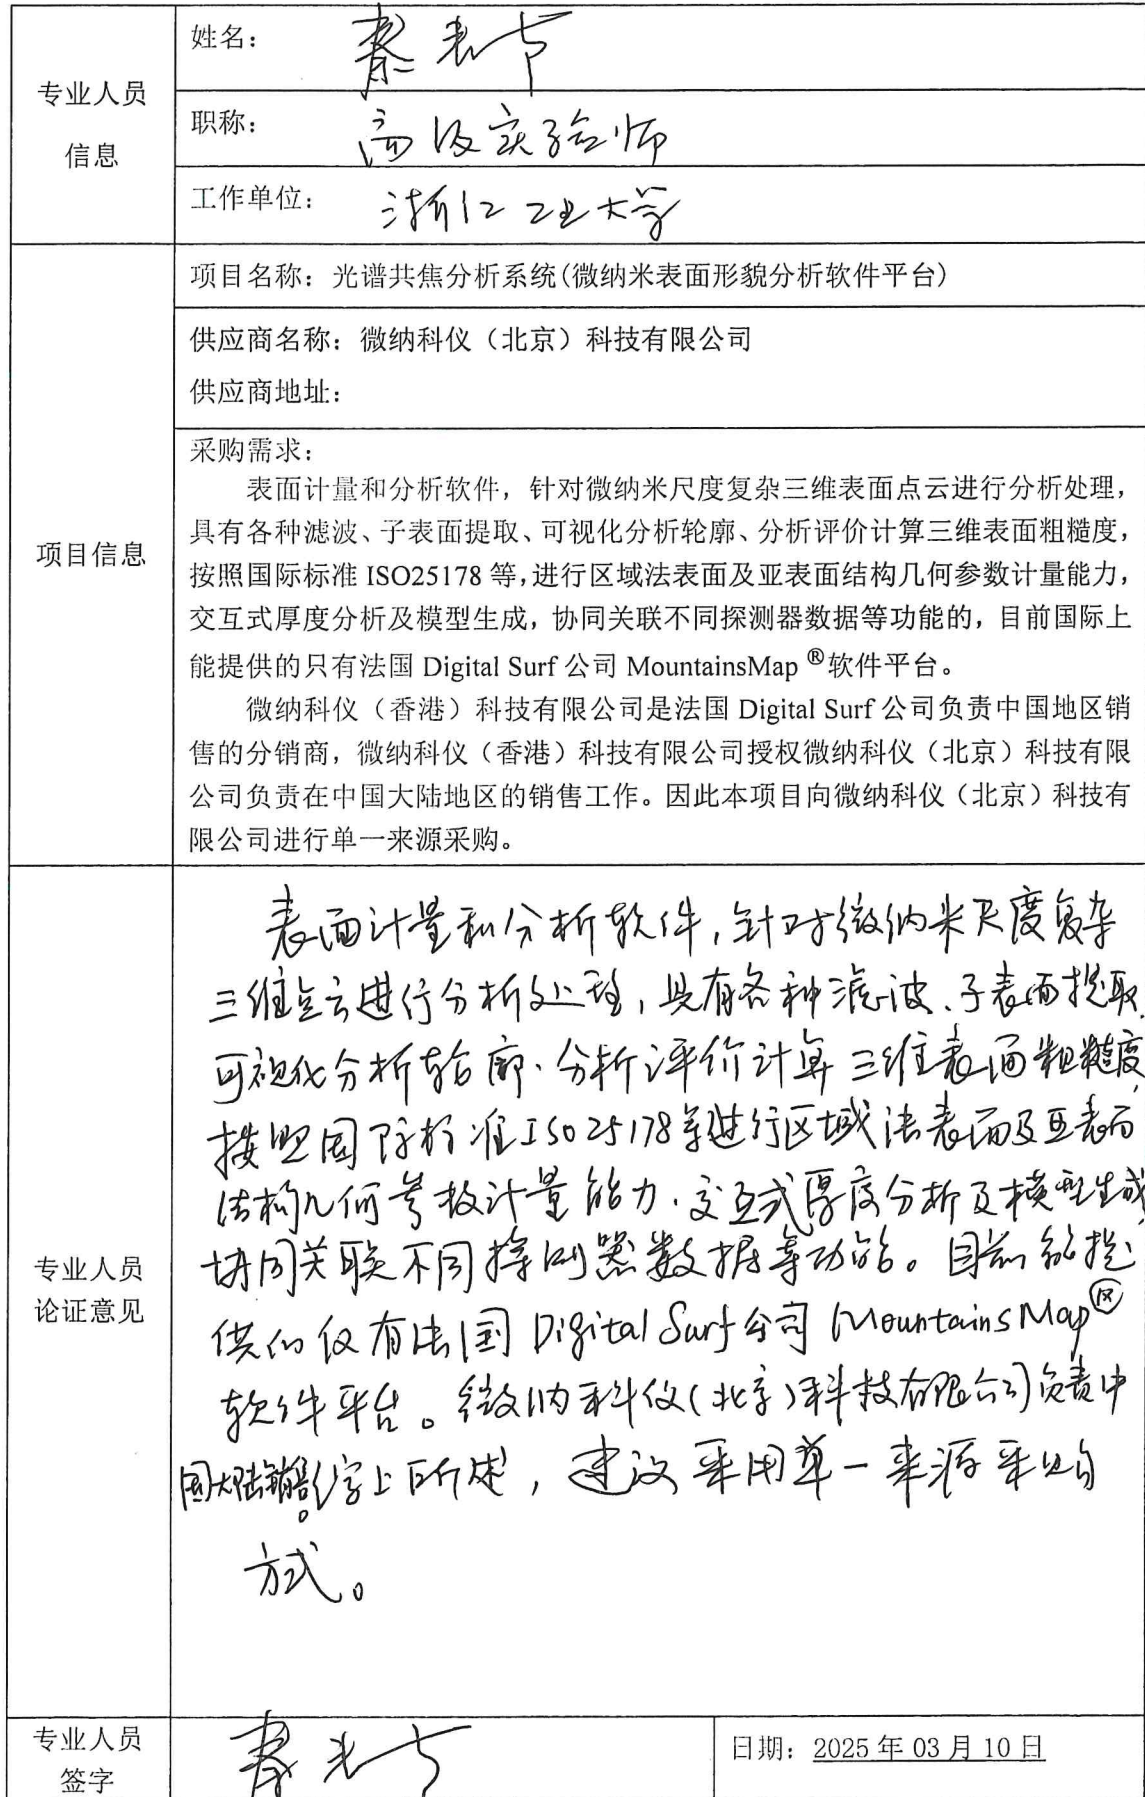 专业人员
信息
姓名：
职称：高级实验师
工作单位：浙江工业大学
项目信息
项目名称：光谱共焦分析系统(微纳米表面形貌分析软件平台)
供应商名称：微纳科仪（北京）科技有限公司
供应商地址：
采购需求：
表面计量和分析软件，针对微纳米尺度复杂三维表面点云进行分析处理，
具有各种滤波、子表面提取、可视化分析轮廓、分析评价计算三维表面粗糙度，
按照国际标准 ISO25178 等，进行区域法表面及亚表面结构几何参数计量能力，
交互式厚度分析及模型生成，协同关联不同探测器数据等功能的，目前国际上
能提供的只有法国 Digital Surf 公司 MountainsMap ®软件平台。
微纳科仪（香港）科技有限公司是法国 Digital Surf 公司负责中国地区销
售的分销商，微纳科仪（香港）科技有限公司授权微纳科仪（北京）科技有限
公司负责在中国大陆地区的销售工作。因此本项目向微纳科仪（北京）科技有
限公司进行单一来源采购。
专业人员
论证意见
表面计量和分析软件，针对微纳米尺度复杂
三维点云进行分析处理，具有各种滤波、子表面提取、
可视化分析轮廓、分析评价计算三维表面粗糙度，
按照国际标准ISO25178等进行区域法表面及亚表面
结构几何参数计量能力，交互式厚度分析及模型生成，
协同关联不同探测器数据等功能。目前能提
供的仅有法国 Digital Surf 公司 MountainsMap®
软件平台。微纳科仪(北京)科技有限公司负责中
国大陆销售。综上所述，建议采用单一来源采购
方式。
专业人员
签字
日期：2025 年 03 月 10 日